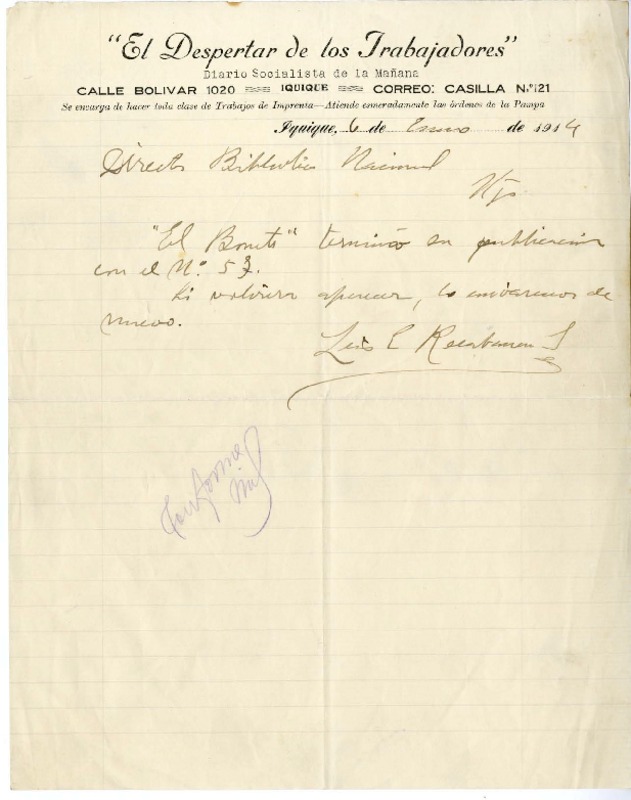 "El Despertar de los Trabajadores"
Diario Socialista de la Mañana
CALLE BOLIVAR 1020 IQUIQUE CORREO: CASILLA N.º 121
Se encarga de hacer toda clase de Trabajos de Imprenta—Atiende esmeradamente las órdenes de la Pampa
Iquique, 6 de Enero de 1914
Director Biblioteca Nacional
"El Bonete" terminó su publicación
con el Nº 57.
Si volviera aparecer, lo enviaremos de
nuevo.
Luis E Recabarren S
Conforme